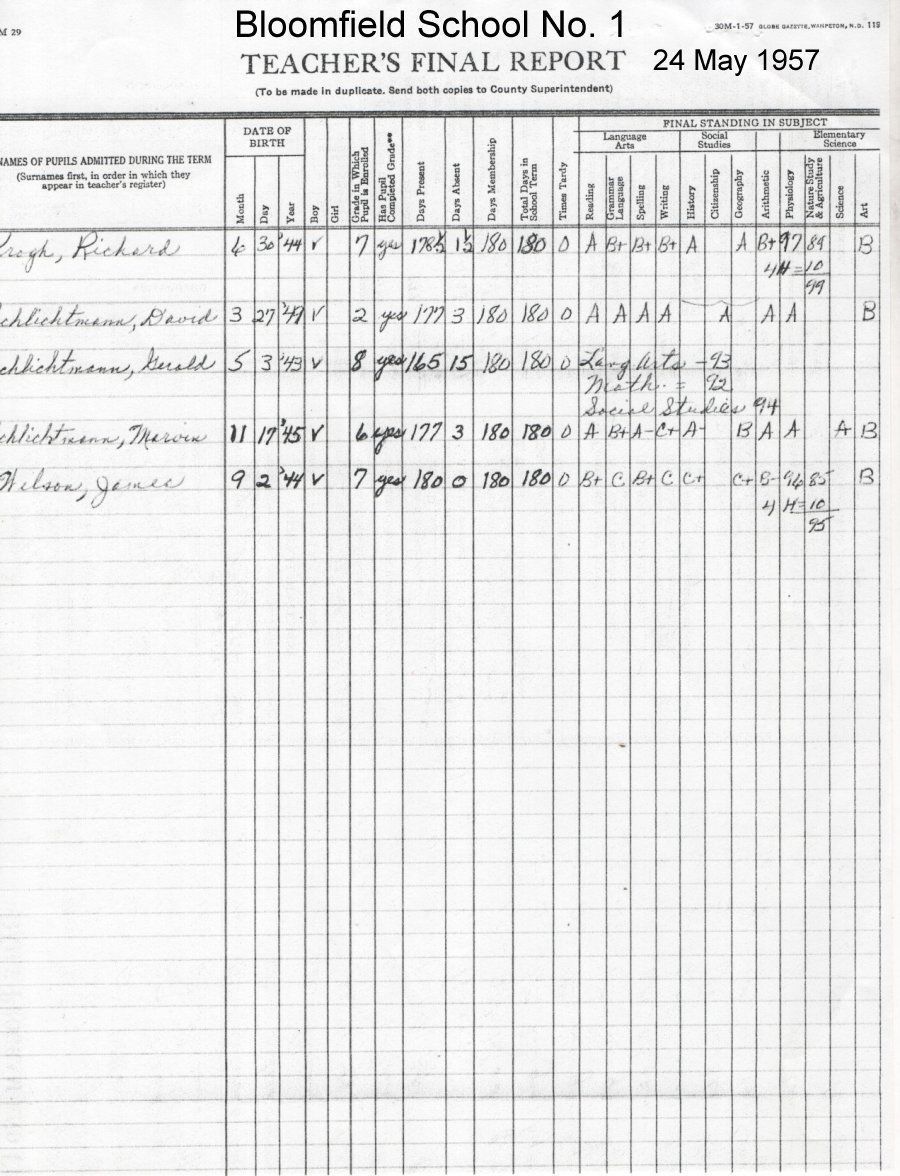 M 29
Bloomfield School No. 1
30M-1-57 GLOBE GAZETTE, WAHPETON, N.D. 119
TEACHER'S FINAL REPORT 24 May 1957
(To be made in duplicate. Send both copies to County Superintendent)
FINAL STANDING IN SUBJECT
DATE OF BIRTH Language Arts Social Studies Elementary Science
NAMES OF PUPILS ADMITTED DURING THE TERM
(Surnames first, in order in which they
appear in teacher's register)
Month Day Year Boy Girl Grade in Which Pupil is Enrolled Has Pupil Completed Grade** Days Present Days Absent Days Membership Total Days in School Term Times Tardy Reading Grammar Language Spelling Writing History Citizenship Geography Arithmetic Physiology Nature Study & Agriculture Science Art
rogh, Richard 6 30 '44 v 7 yes 178½ 1½ 180 180 0 A B+ B+ B+ A A B+ 97 89 B
4H = 10
99
chlichtmann, David 3 27 '49 v 2 yes 177 3 180 180 0 A A A A A A A B
chlichtmann, Gerald 5 3 '43 v 8 yes 165 15 180 180 0 Lang Arts - 93
Math. = 92
Social Studies 94
chlichtmann, Marvin 11 17 '45 v 6 yes 177 3 180 180 0 A B+ A- C+ A- B A A A B
Wilson, James 9 2 '44 v 7 yes 180 0 180 180 0 B+ C B+ C C+ C+ B- 96 85 B
4 H = 10
95